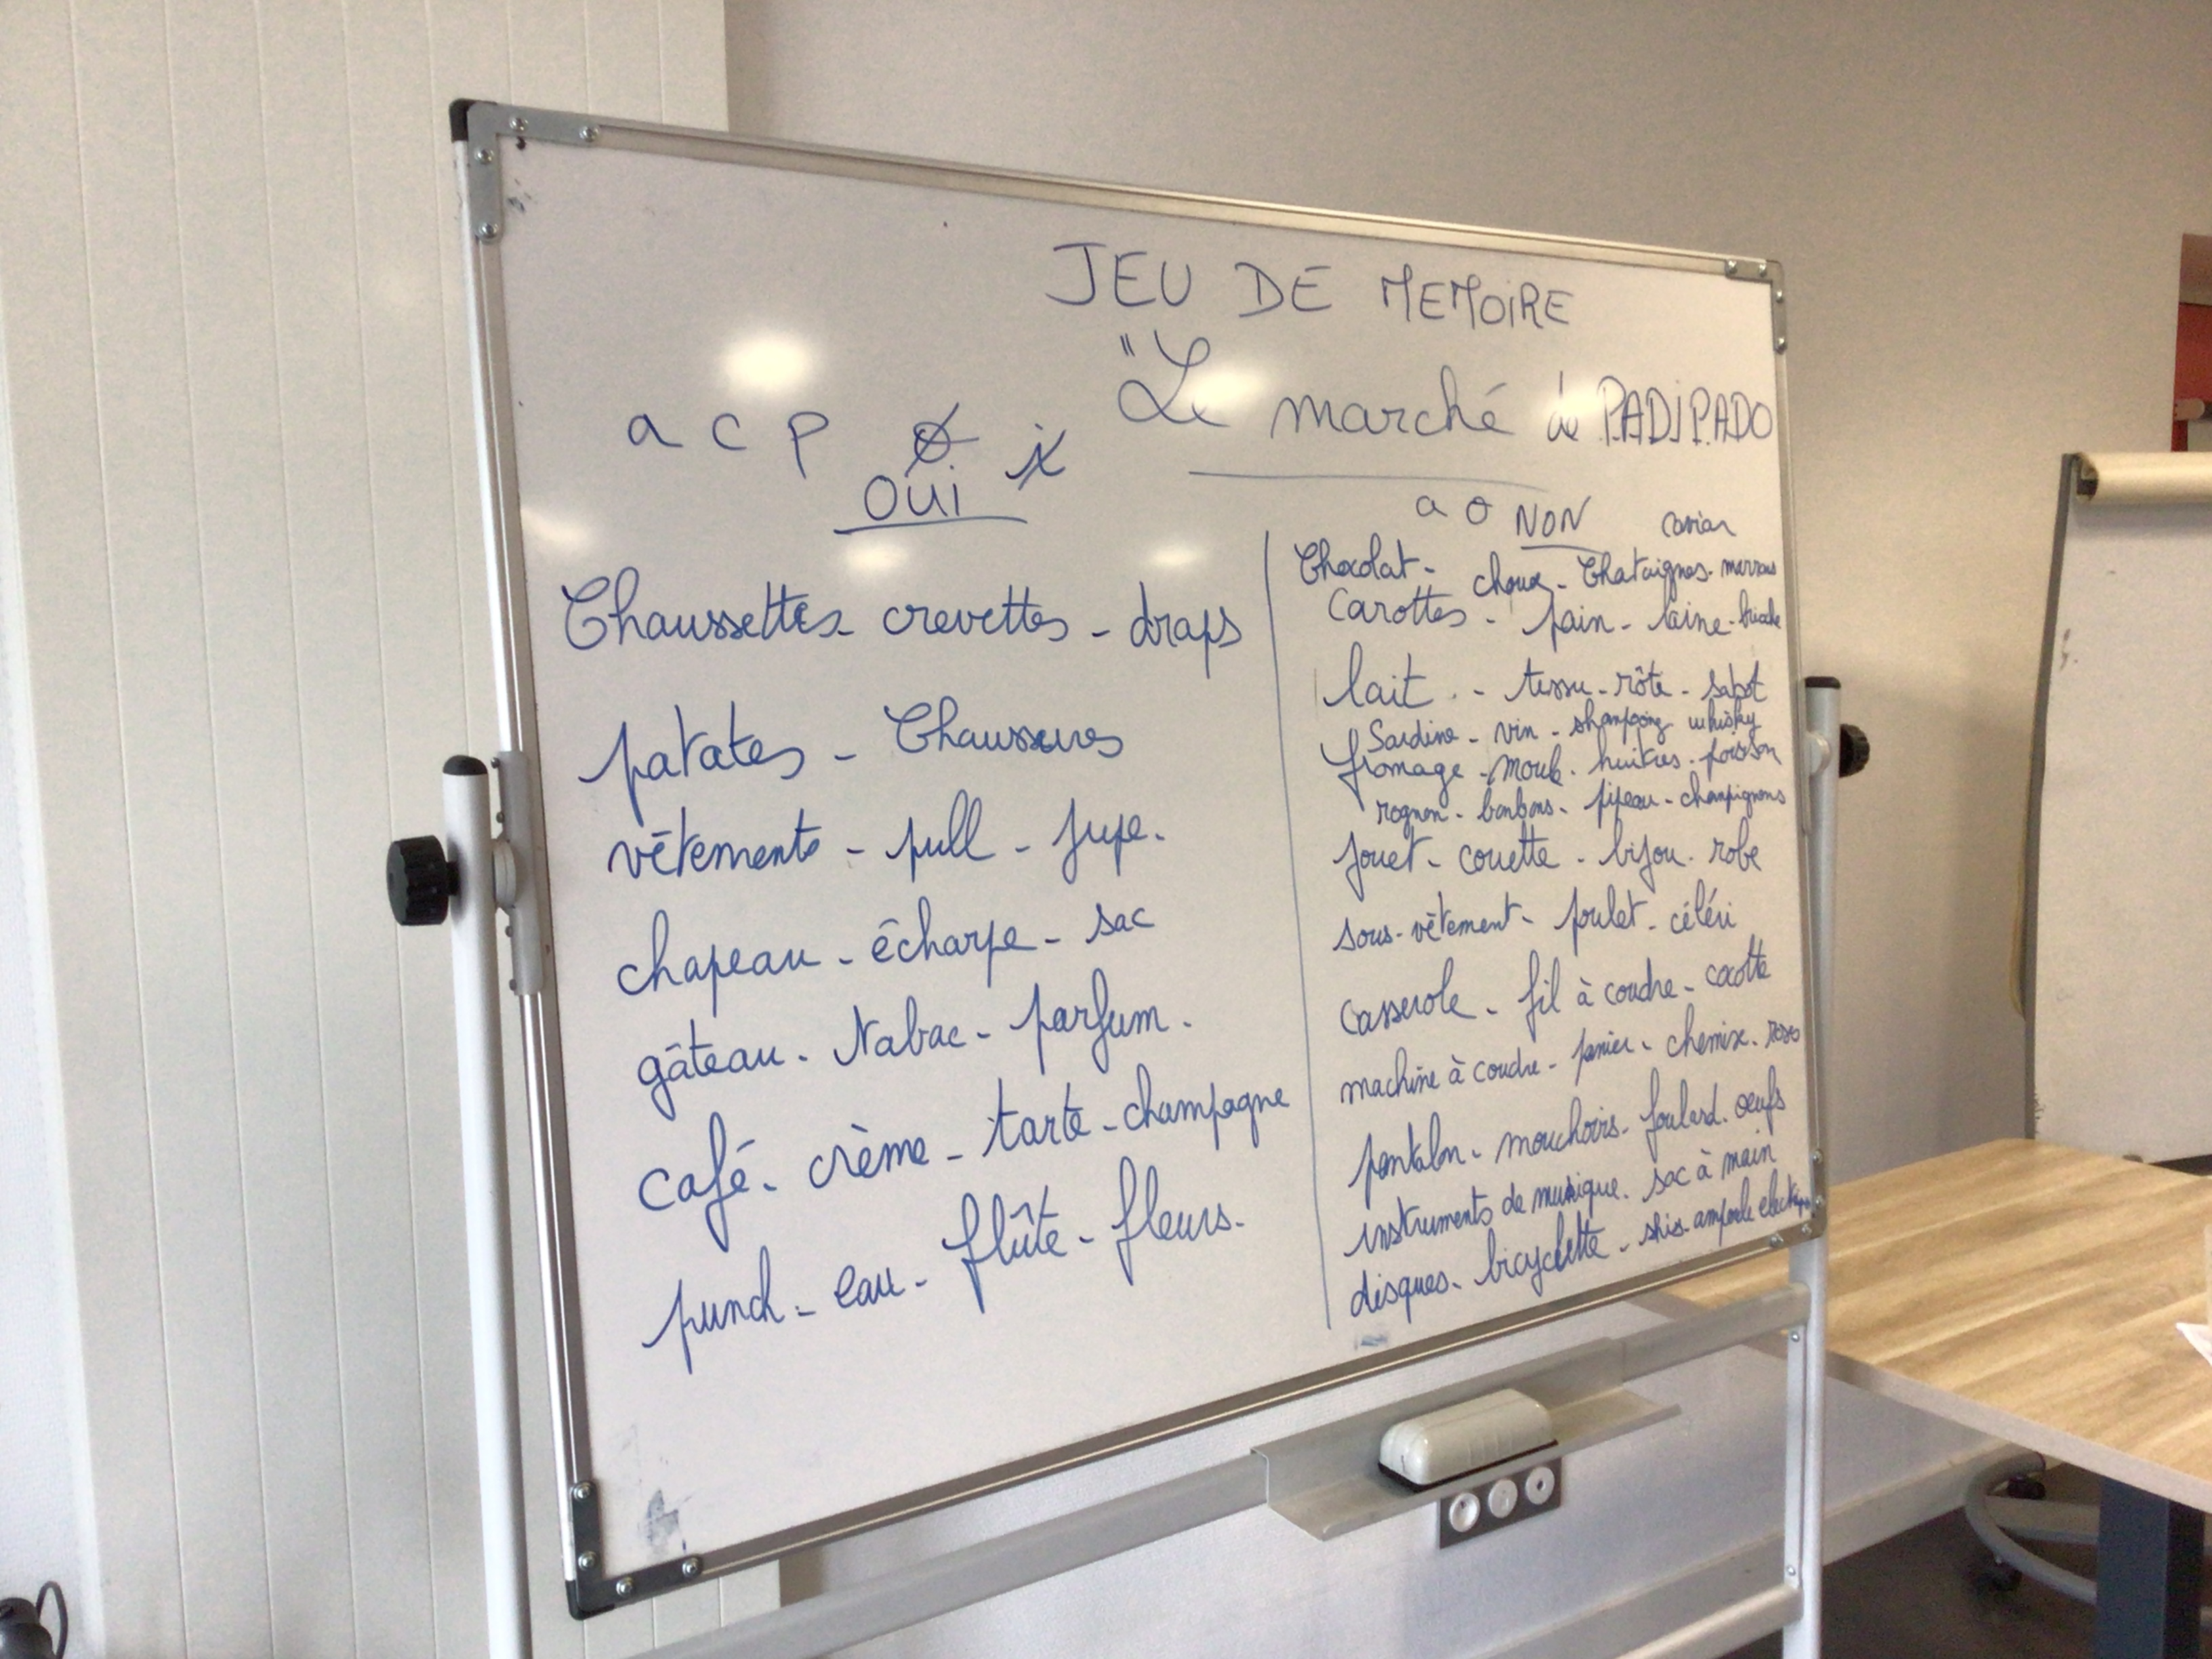 JEU DE MEMOIRE
"Le marché de PADIPADO
a c p o i
OUI
Chaussettes - crevettes - draps
patates - Chaussures
vêtements - pull - jupe.
chapeau - écharpe - sac
gâteau - Tabac - parfum.
café - crème - tarte - champagne
punch - eau - flûte - fleurs.
a o NON caviar
Chocolat - choux - Chataignes - marrons
Carottes - pain - laine - brioche
lait - tissu - rôti - sabot
Sardine - vin - shampoing whisky
fromage - huîtres - poisson
rognon - bonbons - pipeau - champignons
jouet - couette - bijou - robe
sous-vêtement - poulet - céléri
Casserole - fil à coudre - cocotte
machine à coudre - panier - chemise - roses
pantalon - mouchoirs - foulard - oeufs
instruments de musique - sac à main
disques - bicyclette - skis - ampoule